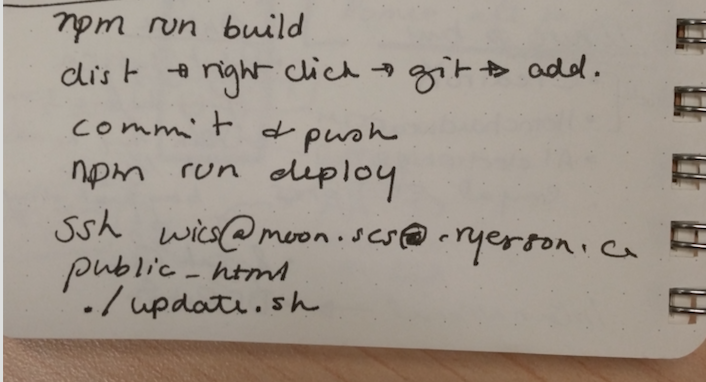 npm run build
dist → right click → git → add.
commit & push
npm run deploy
ssh wics@moon.scs.ryerson.ca
public_html
./update.sh